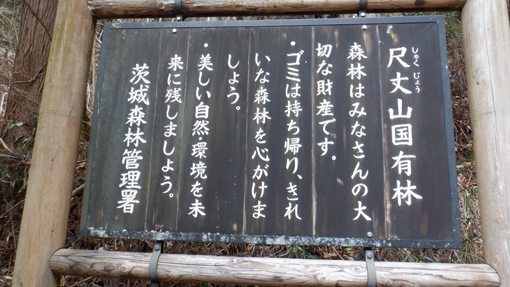 しゃくじょう
尺丈山国有林
森林はみなさんの大
切な財産です。
・ゴミは持ち帰り、きれ
いな森林を心がけま
しょう。
・美しい自然・環境を未
来に残しましょう。
茨城森林管理署